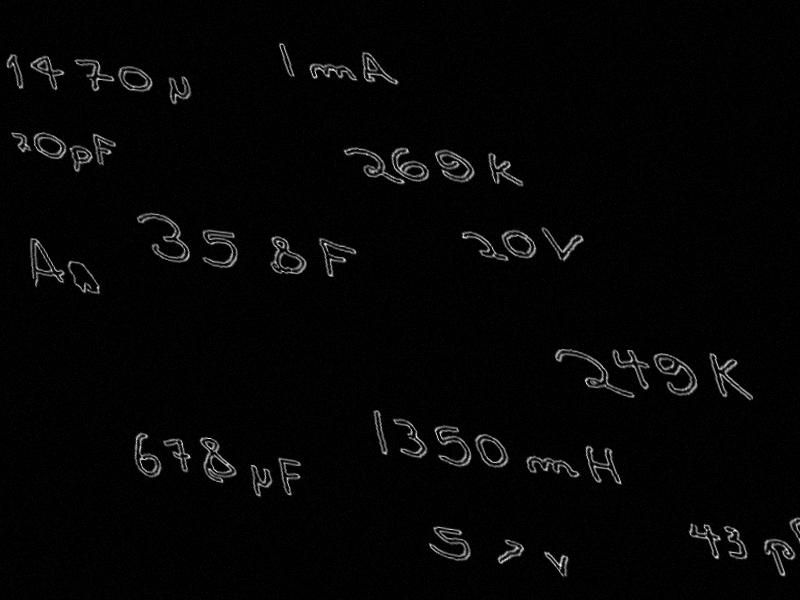 1470 µ
1 mA
20pF
269 K
An
358 F
20V
249 K
678 µF
1350 mH
43 p